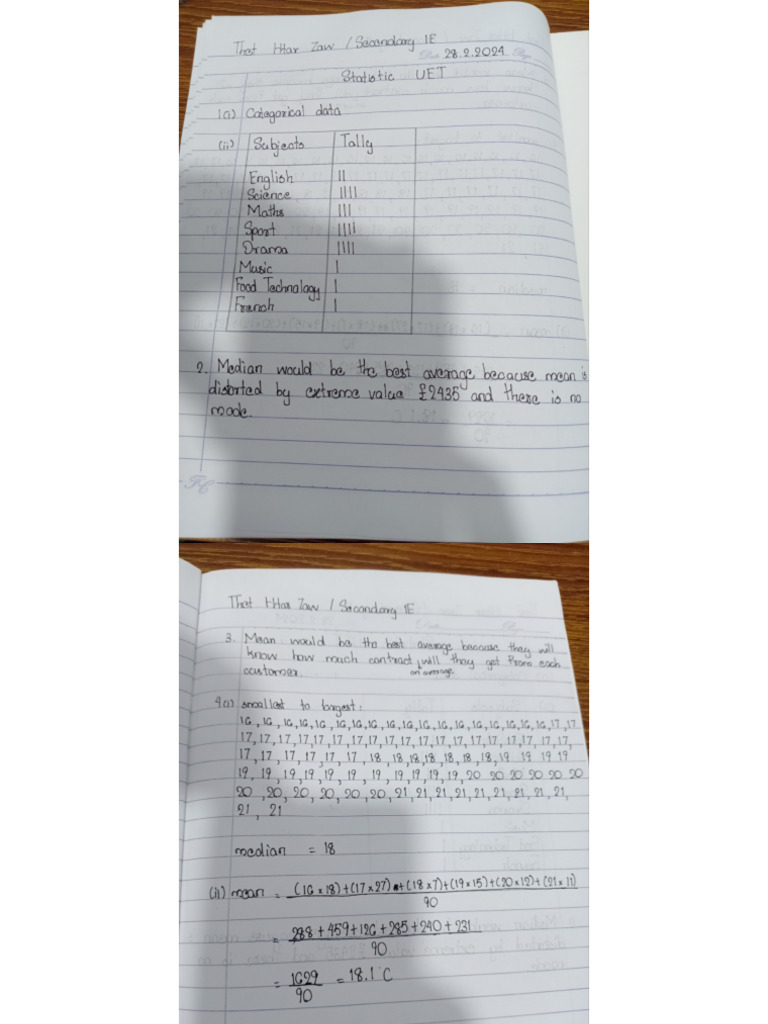 Thet Htar Zaw / Secondary 1E
Date 28.2.2024 Page
Statistic UET
1(i) Categorical data
(ii) Subjects Tally
English ||
Science ||||
Maths |||
Sport ||||
Drama ||||
Music |
Food Technology |
French |
2. Median would be the best average because mean is
distorted by extreme value £2435 and there is no
mode.
Thet Htar Zaw / Secondary 1E
3. Mean would be the best average because they will
know how much contract, will they get from each
customer. on average
4(i) smallest to largest:
16, 16, 16, 16, 16, 16, 16, 16, 16, 16, 16, 16, 16, 16, 16, 16, 16, 16, 17, 17
17, 17, 17, 17, 17, 17, 17, 17, 17, 17, 17, 17, 17, 17, 17, 17, 17, 17, 17,
17, 17, 17, 17, 17, 17, 18, 18, 18, 18, 18, 18, 18, 19 19 19 19
19, 19, 19, 19, 19, 19, 19, 19, 19, 19, 19, 20 20 20 20 20 20
20, 20, 20, 20, 20, 20, 21, 21, 21, 21, 21, 21, 21, 21, 21,
21, 21
median = 18
(ii) mean = (16 x 18) + (17 x 27) + (18 x 7) + (19 x 15) + (20 x 12) + (21 x 11)
90
= 288 + 459 + 126 + 285 + 240 + 231
90
= 1629 = 18.1°C
90